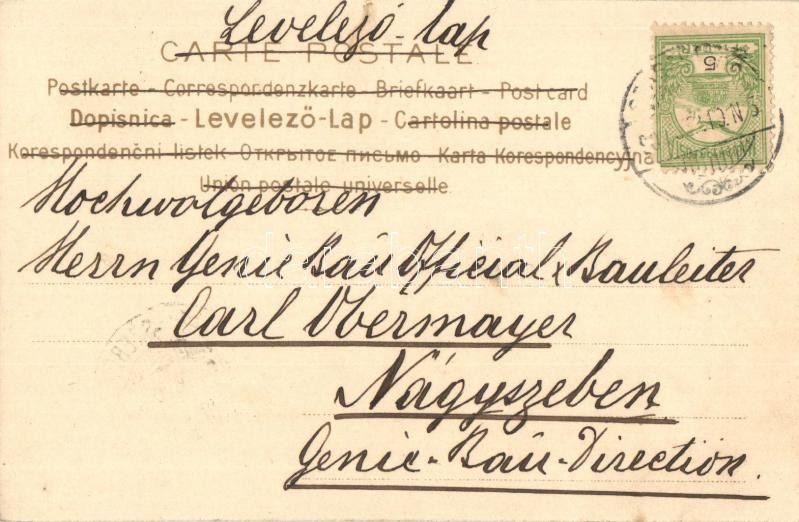 Levelező-lap
CARTE POSTALE
Postkarte - Correspondenzkarte - Briefkaart - Post card
Dopisnica - Levelező-Lap - Cartolina postale
Korespondenční listek - Открытое письмо - Karta Korespondencyjna
Union postale universelle
Hochwolgeboren
Herrn Genie Bau Official & Bauleiter
Carl Obermayer
Nagyszeben
Genie-Bau-Direction.
5